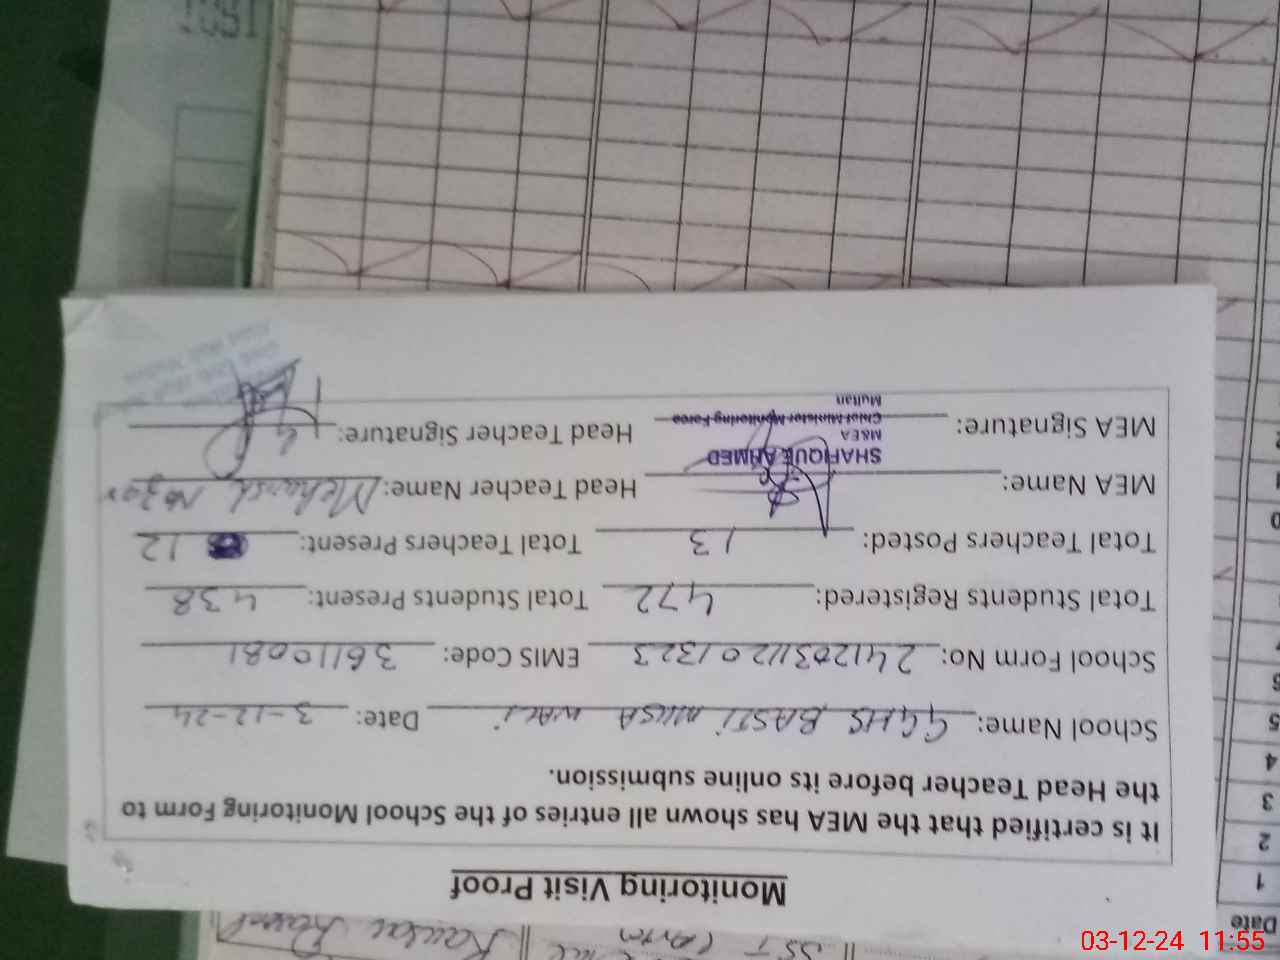 Monitoring Visit Proof
It is certified that the MEA has shown all entries of the School Monitoring Form to
the Head Teacher before its online submission.
School Name: GGHS BASTI MUSA WALI Date: 3-12-24
School Form No: 24120311201323 EMIS Code: 36110081
Total Students Registered: 472 Total Students Present: 438
Total Teachers Posted: 13 Total Teachers Present: 12
MEA Name: Head Teacher Name: Mehwish
SHAFIQUE AHMED
M&EA
MEA Signature: Head Teacher Signature:
Chief Minister Monitoring Force
Multan
Date
1
2
3
4
5
SST (
03-12-24 11:55